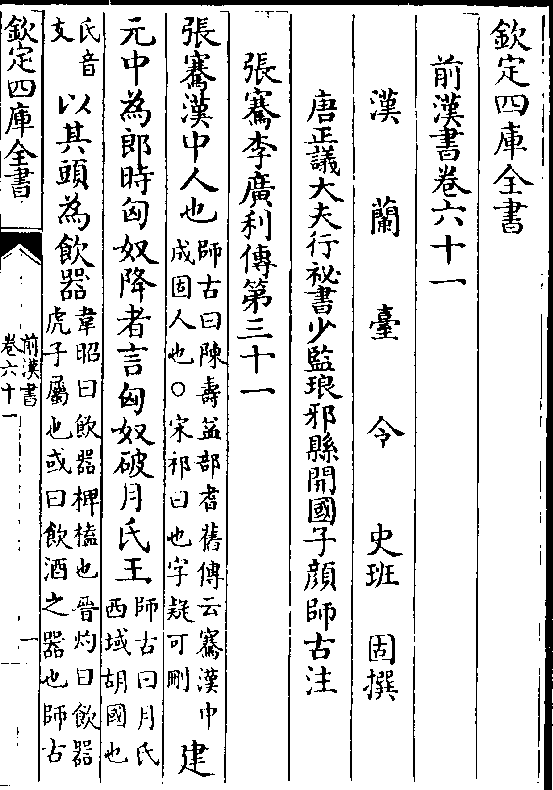 欽定四庫全書
前漢書卷六十一
漢蘭臺令史班固撰
唐正議大夫行祕書少監琅邪縣開國子顔師古注
張騫李廣利傳第三十一
張騫漢中人也師古曰陳壽益部耆舊傳云騫漢中成固人也○宋祁曰也字疑可刪建
元中為郎時匈奴降者言匈奴破月氏王師古曰月氏西域胡國也
氏音支以其頭為飲器韋昭曰飲器椑榼也晉灼曰飲器虎子屬也或曰飲酒之器也師古
欽定四庫全書
前漢書
卷六十一
一